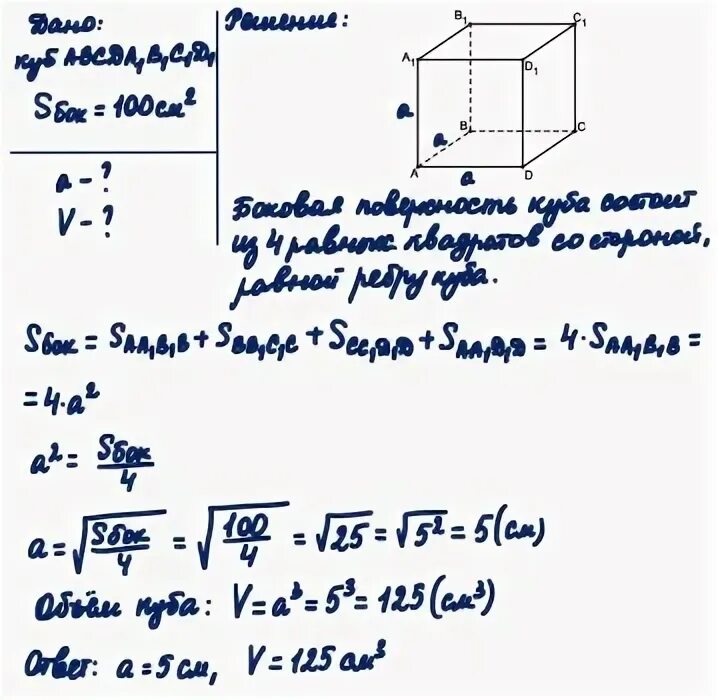 Дано:
куб ABCDA₁B₁C₁D₁
Sбок = 100 см²
a - ?
V - ?
Решение:
B₁
C₁
A₁
D₁
a
B
C
a
A
a
D
Боковая поверхность куба состоит
из 4 равных квадратов со стороной,
равной ребру куба.
Sбок = SAA₁B₁B + SBB₁C₁C + SCC₁D₁D + SAA₁D₁D = 4·SAA₁B₁B =
= 4·a²
a² = Sбок/4
a = √(Sбок/4) = √(100/4) = √25 = √5² = 5 (см)
Объём куба: V = a³ = 5³ = 125 (см³)
Ответ: a = 5 см, V = 125 см³